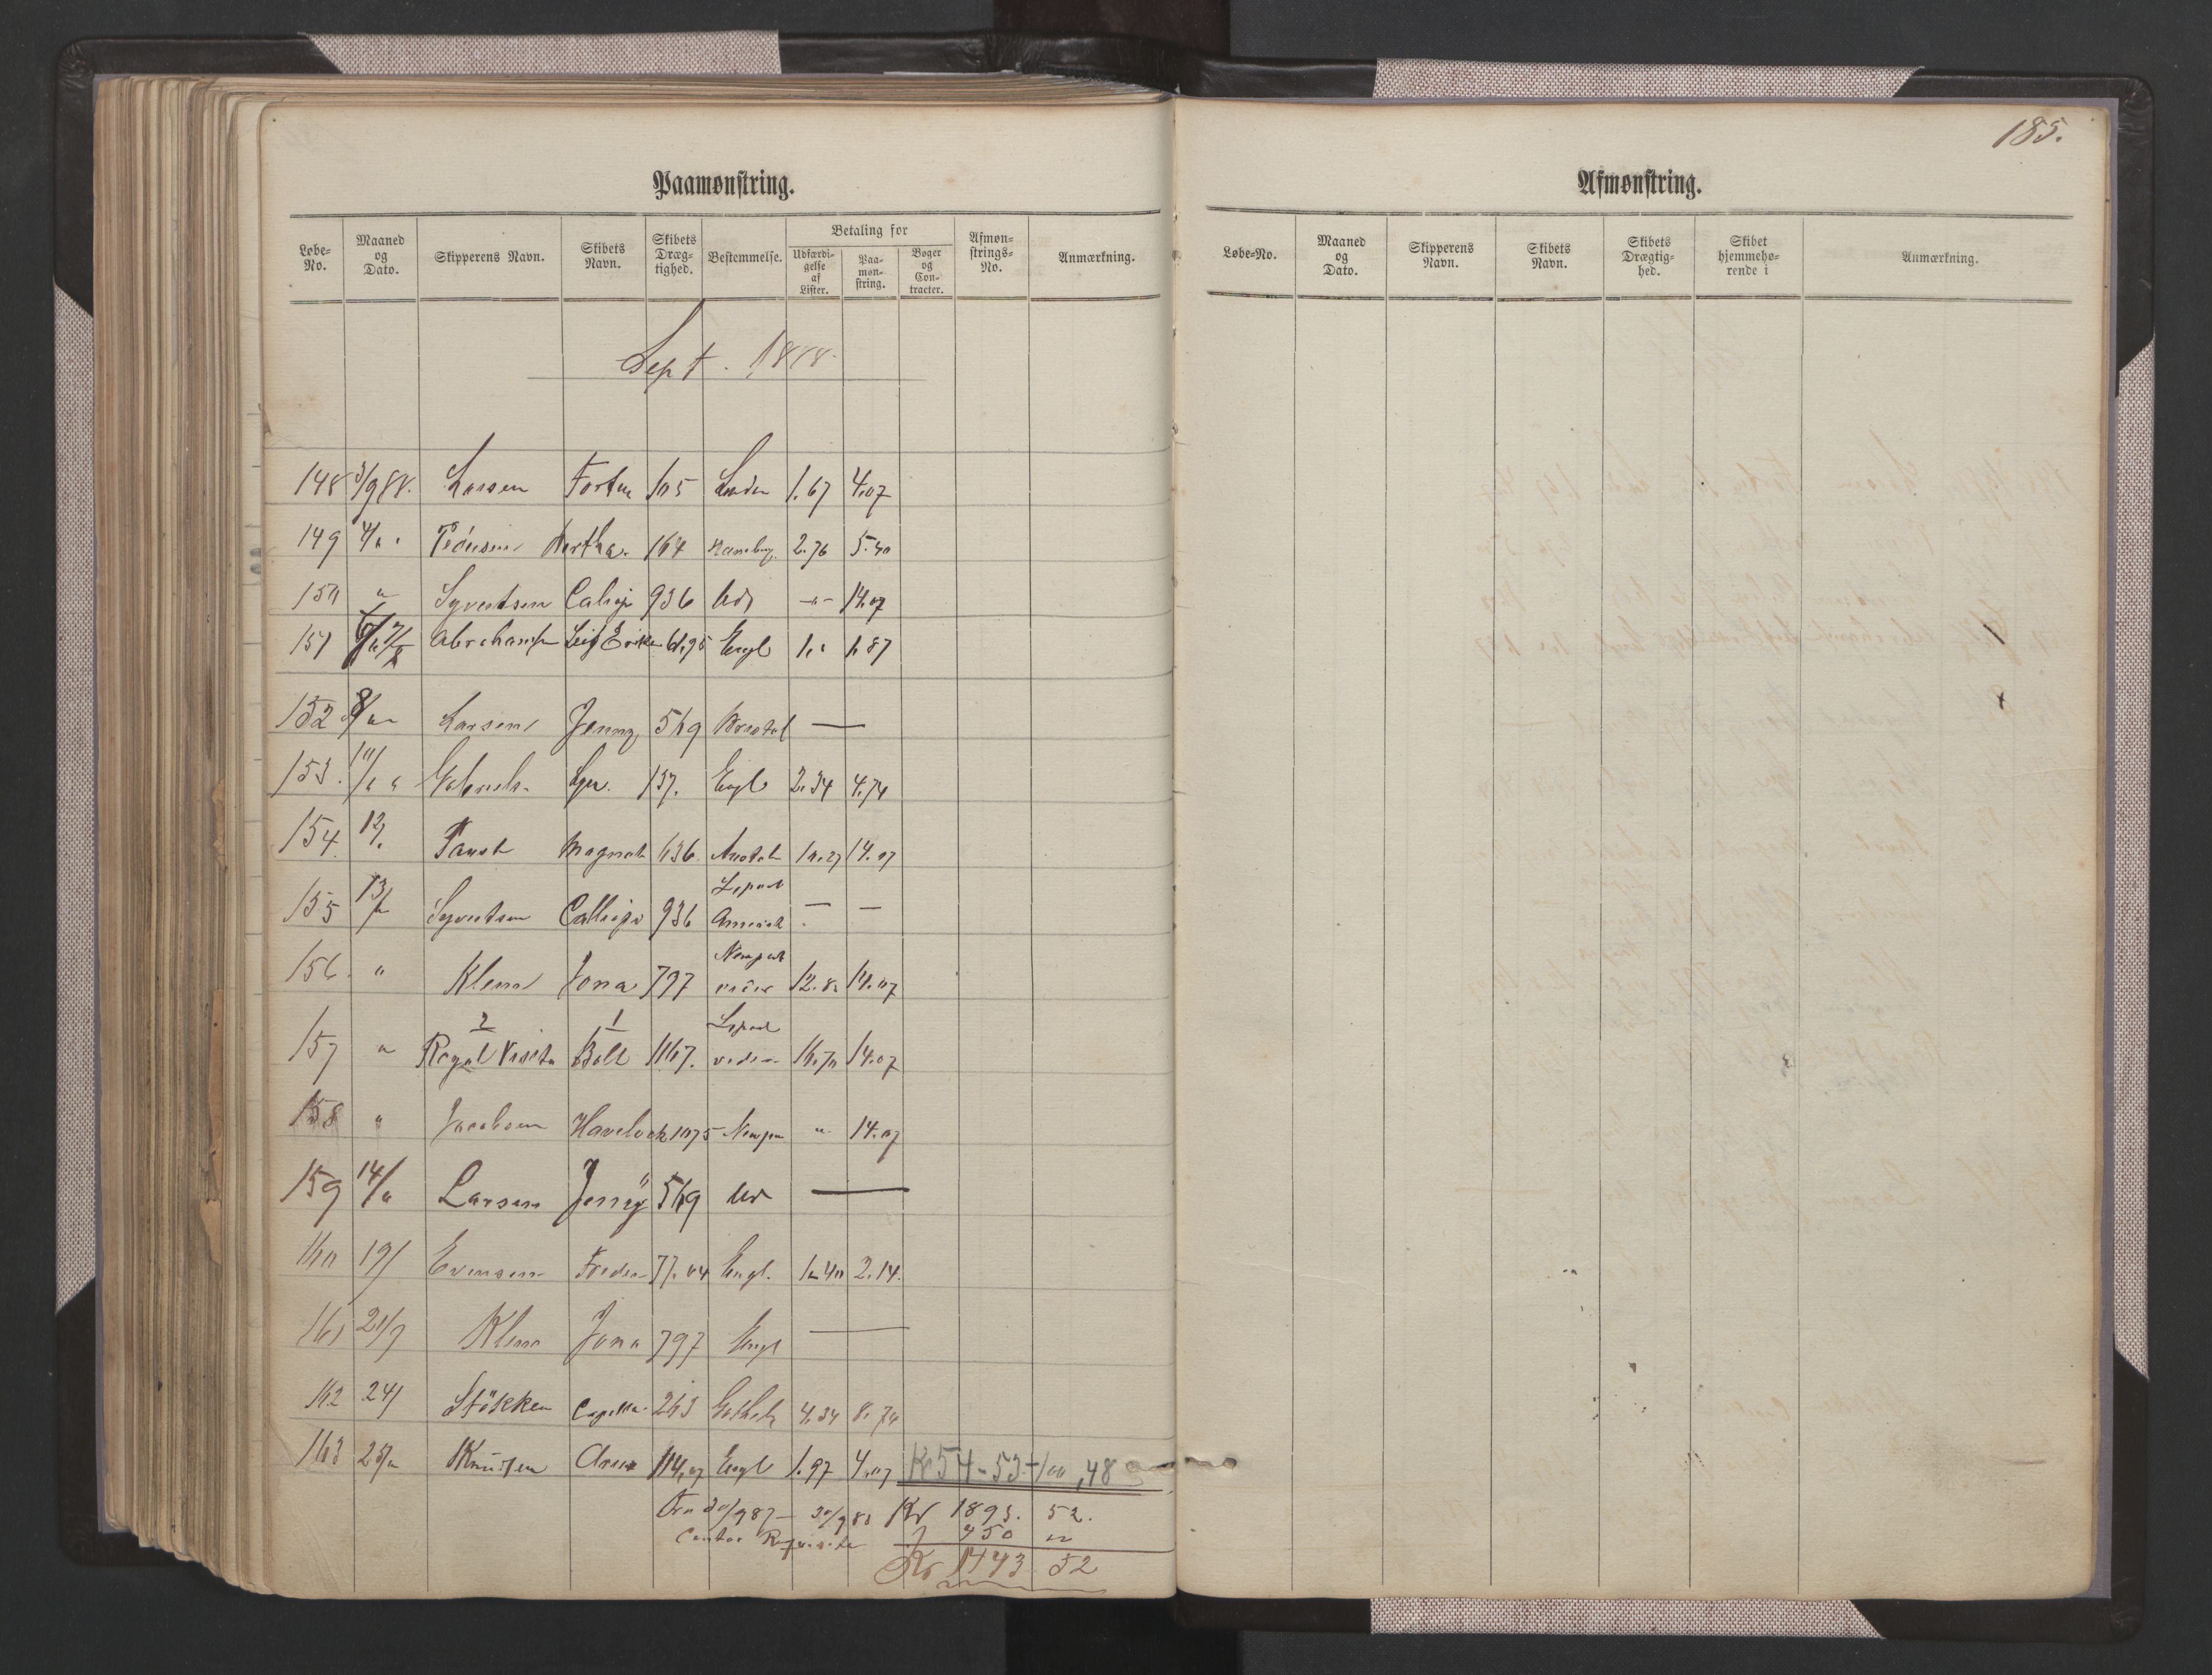 185.
Paamønstring.
Løbe-No. Maaned og Dato. Skipperens Navn. Skibets Navn. Skibets Dræg-tighed. Bestemmelse. Betaling for Udfærdi-gelse af Lister. Paa-møn-string. Bøger og Con-tracter. Afmøn-strings-No. Anmærkning.
Sept. 1888.
148 3/9 88. Larsen Fortuna 105 1.67 4.07
149 4/" " Hertha. 164 Hamburg. 2.76 5.40
150 " Syvertsen 936 Udr -"- 14.07
151 Abrahams Leif Erikse 61,95 Engl 1," 1.87
152 8/" " Larsen Jenny 569 Bristol —
153. 10/" " Gabriels. 137. Engl 2.34 4.74
154. 12/. Faust Magnat 636 10.27 14.07
155 13/" Syvertsen Calliope 936 — —
156. " Klem Jona 797 Newport 12.82 14.07
157 " 2 Royal Visitor 1 Bolt 1167. 16.70 14.07
158 " Jacobsen Havelock 1075 Newpor " 14.07
159 14/" Larsen Jenny 569 Udr —
160 19/ Evensen 77.04 Engl. 1.40 2.14.
161 21/9 Klem Jona 797 Engl —
162 24/ Støkken Capella. 263 4.34 8.74
163 25/" Knudsen 114,07 Engl 1.97 4.07 Kr 54-53 + 100,48
Fra 30/9 87 – 30/9 88 Kr 1893. 52.
Contor Requisita 450 "
Kr 1443. 52
Afmønstring.
Løbe-No. Maaned og Dato. Skipperens Navn. Skibets Navn. Skibets Drægtig-hed. Skibet hjemmehø-rende i Anmærkning.